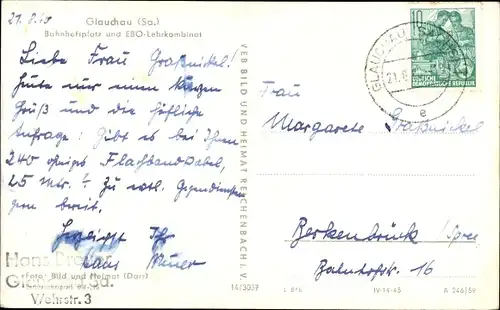 21.8.60
Glauchau (Sa.)
Bahnhofsplatz und EBO-Lehrkombinat
Liebe Frau Graßnickel!
Heute nur einen kurzen
Gruß und die höfliche
Anfrage: Gibt es bei Ihnen
240 ohmiges Flachbandkabel,
25 Mtr.? Zu evtl. Gegendiensten
gern bereit.
Herzlichst Ihr
Hans
Hans
Foto: Bild und Heimat (Darr)
Wehrstr. 3
VEB BILD UND HEIMAT REICHENBACH i. V.
14/3037
10
DEUTSCHE
DEMOKRATISCHE REPUBLIK
GLAUCHAU (SACHS)
21.8.
e
Frau
Margarete Graßnickel
Berkenbrück / Spree
Bahnhofstr. 16
IV-14-45
A 246/59